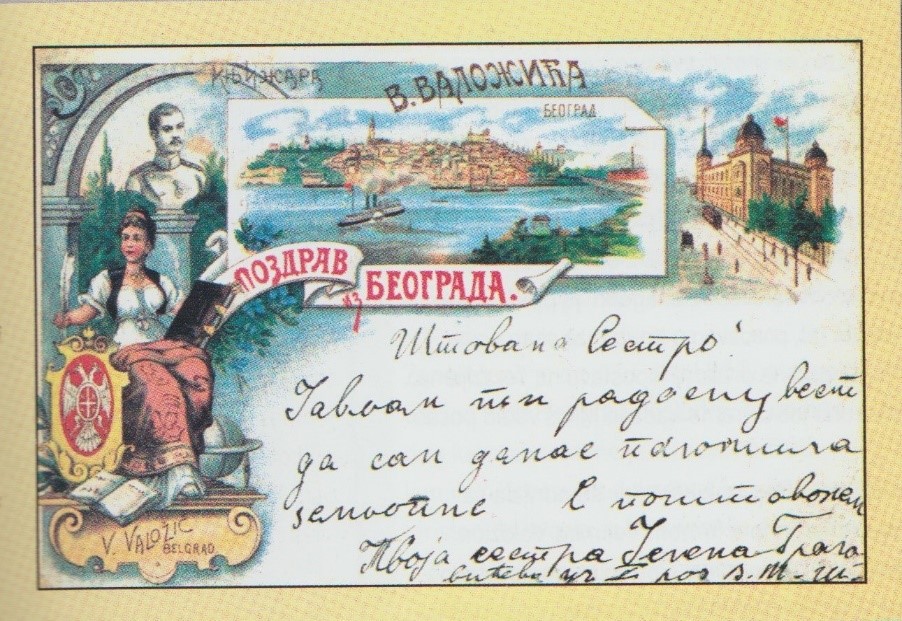 КЊИЖАРА
В. ВАЛОЖИЋА
БЕОГРАД
ПОЗДРАВ
ИЗ БЕОГРАДА.
Штована Сестро!
Јављам ти радосну вест
да сам данас положила
С поштовањем
Твоја сестра Јелена
V. VALOZIC
BELGRAD